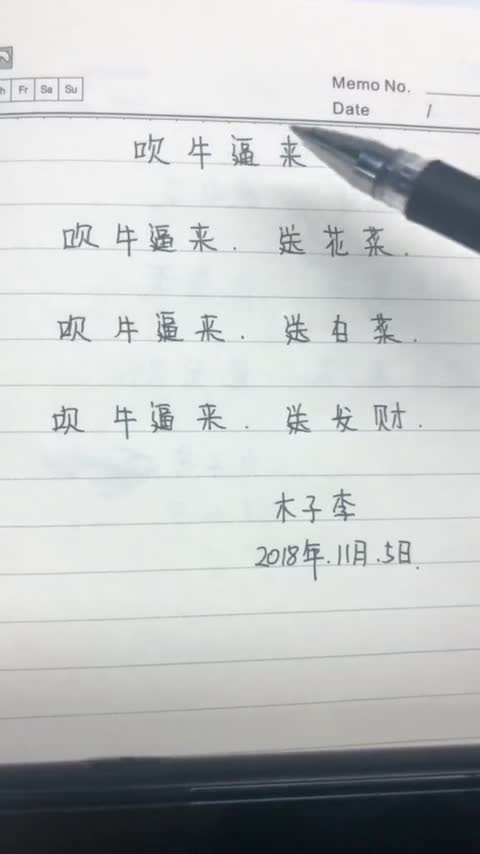 h Fr Sa Su
Memo No.
Date /
吹牛逼来
吹牛逼来. 送花菜.
吹牛逼来. 送白菜.
吹牛逼来. 送发财.
木子李
2018年.11月.5日.